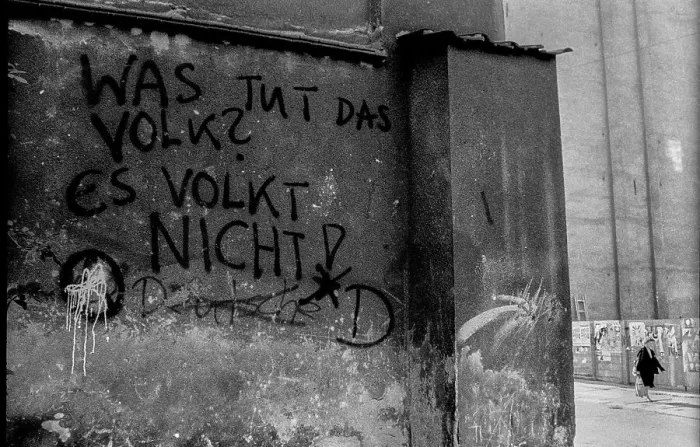 WAS TUT DAS
VOLK?
ES VOLKT
NICHT!
Deutsche D